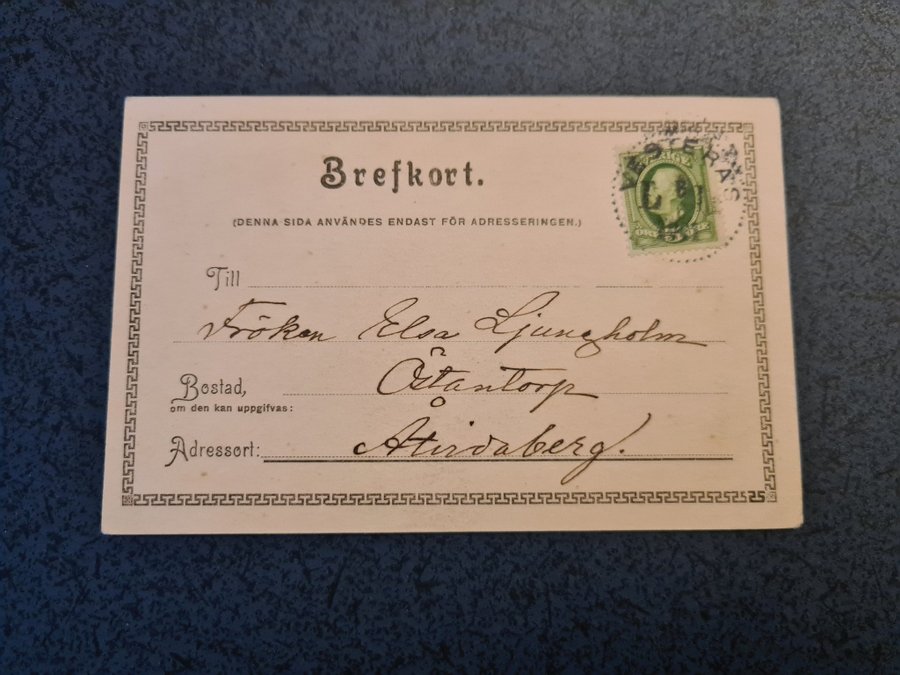 Brefkort.
(DENNA SIDA ANVÄNDES ENDAST FÖR ADRESSERINGEN.)
VESTERÅS
SVERIGE
Till
Fröken Elsa Ljungholm
Bostad, Östantorp
om den kan uppgifvas:
Adressort: Åtvidaberg.